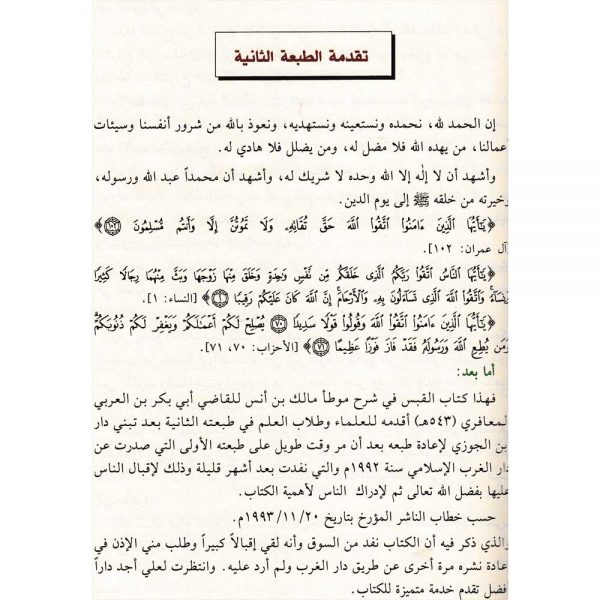 تقدمة الطبعة الثانية
إن الحمد لله، نحمده ونستعينه ونستهديه، ونعوذ بالله من شرور أنفسنا وسيئات
أعمالنا، من يهده الله فلا مضل له، ومن يضلل فلا هادي له.
وأشهد أن لا إله إلا الله وحده لا شريك له، وأشهد أن محمداً عبد الله ورسوله،
وخيرته من خلقه ﷺ إلى يوم الدين.
﴿يَٰٓأَيُّهَا ٱلَّذِينَ ءَامَنُوا۟ ٱتَّقُوا۟ ٱللَّهَ حَقَّ تُقَاتِهِۦ وَلَا تَمُوتُنَّ إِلَّا وَأَنتُم مُّسْلِمُونَ ١٠٢﴾
[آل عمران: ١٠٢].
﴿يَٰٓأَيُّهَا ٱلنَّاسُ ٱتَّقُوا۟ رَبَّكُمُ ٱلَّذِى خَلَقَكُم مِّن نَّفْسٍ وَٰحِدَةٍ وَخَلَقَ مِنْهَا زَوْجَهَا وَبَثَّ مِنْهُمَا رِجَالًا كَثِيرًا
وَنِسَآءً ۚ وَٱتَّقُوا۟ ٱللَّهَ ٱلَّذِى تَسَآءَلُونَ بِهِۦ وَٱلْأَرْحَامَ ۚ إِنَّ ٱللَّهَ كَانَ عَلَيْكُمْ رَقِيبًا ١﴾ [النساء: ١].
﴿يَٰٓأَيُّهَا ٱلَّذِينَ ءَامَنُوا۟ ٱتَّقُوا۟ ٱللَّهَ وَقُولُوا۟ قَوْلًا سَدِيدًا ٧٠ يُصْلِحْ لَكُمْ أَعْمَٰلَكُمْ وَيَغْفِرْ لَكُمْ ذُنُوبَكُمْ ۗ
وَمَن يُطِعِ ٱللَّهَ وَرَسُولَهُۥ فَقَدْ فَازَ فَوْزًا عَظِيمًا ٧١﴾ [الأحزاب: ٧٠، ٧١].
أما بعد:
فهذا كتاب القبس في شرح موطأ مالك بن أنس للقاضي أبي بكر بن العربي
المعافري (٥٤٣هـ) أقدمه للعلماء وطلاب العلم في طبعته الثانية بعد تبني دار
ابن الجوزي لإعادة طبعه بعد أن مر وقت طويل على طبعته الأولى التي صدرت عن
دار الغرب الإسلامي سنة ١٩٩٢م والتي نفدت بعد أشهر قليلة وذلك لإقبال الناس
عليها بفضل الله تعالى ثم لإدراك الناس لأهمية الكتاب.
حسب خطاب الناشر المؤرخ بتاريخ ١٩٩٣/١١/٢٠م.
والذي ذكر فيه أن الكتاب نفد من السوق وأنه لقي إقبالاً كبيراً وطلب مني الإذن في
إعادة نشره مرة أخرى عن طريق دار الغرب ولم أرد عليه. وانتظرت لعلي أجد داراً
أفضل تقدم خدمة متميزة للكتاب.